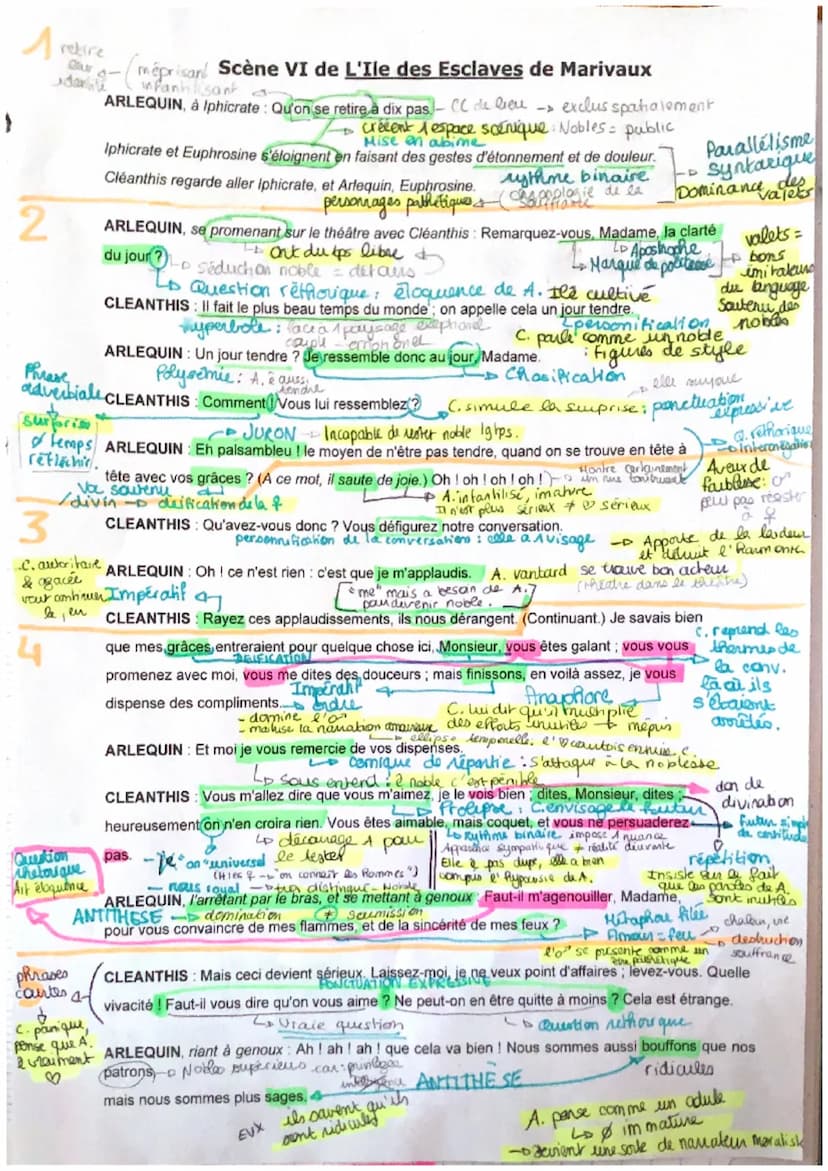 1
retire
leur
identité
(méprisant
infantilisant
Scène VI de L'Ile des Esclaves de Marivaux
ARLEQUIN, à Iphicrate : Qu'on se retire à dix pas.
CC de lieu → exclus spatialement
créent 1 espace scénique : Nobles = public
Mise en abime
Iphicrate et Euphrosine s'éloignent en faisant des gestes d'étonnement et de douleur.
Parallélisme
syntaxique
rythme binaire
Cléanthis regarde aller Iphicrate, et Arlequin, Euphrosine.
Dominance des
valets
personnages pathétiques
(chronologie de la
souffrance
2
ARLEQUIN, se promenant sur le théâtre avec Cléanthis : Remarquez-vous, Madame, la clarté
du jour ?
Ont du tps libre
Apostrophe
Marque de politesse
valets =
bons
imitateurs
du language
soutenu des
nobles
séduction noble = détours
Question réthorique : éloquence de A. Il é cultivé
CLEANTHIS : Il fait le plus beau temps du monde ; on appelle cela un jour tendre.
hyperbole : face à 1 paysage exeptionel
couple
personification
C. parle comme un noble
: figures de style
ARLEQUIN : Un jour tendre ? Je ressemble donc au jour, Madame.
Polysémie : A. é aussi
tendre
Chosification
Phrase
adverbiale
elle minaude
CLEANTHIS : Comment ! Vous lui ressemblez ?
C. simule la surprise : ponctuation
expressive
surprise
ø temps
réfléchir
JURON → Incapable de rester noble lgtps.
Q. réthorique
interronégative
ARLEQUIN : Eh palsambleu ! le moyen de n'être pas tendre, quand on se trouve en tête à
tête avec vos grâces ? (A ce mot, il saute de joie.) Oh ! oh ! oh ! oh !
Aveux de
faiblesse : ♂
peut pas résister
à ♀
Voc soutenu
/divin → deification de la ♀
A. infantilisé, imature
Il n'est plus sérieux ≠ ♡ sérieux
3
CLEANTHIS : Qu'avez-vous donc ? Vous défigurez notre conversation.
personnification de la conversation : elle a 1 visage
→ Apporte de la laideur
et détruit l'harmonie
C. autoritaire
& agacée
veut continuer
le jeu
ARLEQUIN : Oh ! ce n'est rien : c'est que je m'applaudis.
A. vantard se trouve bon acteur
(théâtre dans le théâtre)
Impératif
"me" mais a besoin de A.
pour devenir noble.
CLEANTHIS : Rayez ces applaudissements, ils nous dérangent. (Continuant.) Je savais bien
4
que mes grâces entreraient pour quelque chose ici, Monsieur, vous êtes galant ; vous vous
DEIFICATION
promenez avec moi, vous me dites des douceurs ; mais finissons, en voilà assez, je vous
C. reprend les
thermes de
la conv.
là où ils
s'étaient
arrêtés.
Impératif
ordre
Anaphore
dispense des compliments.
- domine l'♂
- maitrise la narration amoureuse
C. lui dit qu'il multiplie
des efforts inutiles → mépris
ellipse temporelle.
ARLEQUIN : Et moi je vous remercie de vos dispenses.
Comique de répartie : s'attaque à la noblesse
Sous entend : ê noble c'est pénible
CLEANTHIS : Vous m'allez dire que vous m'aimez, je le vois bien ; dites, Monsieur, dites ;
don de
divination
Prolepse : C. envisage le futur
heureusement on n'en croira rien. Vous êtes aimable, mais coquet, et vous ne persuaderez
Futur simple
de certitude
pas.
décourage A pour
le tester
rythme binaire impose 1 nuance
Apparence sympathique ≠ réalité décevante
Elle é pas dupe, elle a bien
compris l'hypocrisie de A.
répétition
Insiste sur le fait
que les paroles de A.
sont inutiles
- "on" universel
- nous royal → très distingué - Noble
Question
rhétorique
A é éloquent
ARLEQUIN, l'arrêtant par le bras, et se mettant à genoux : Faut-il m'agenouiller, Madame,
ANTITHESE → domination ≠ soumission
pour vous convaincre de mes flammes, et de la sincérité de mes feux ?
Métaphore filée
Amour = feu
chaleur, vie
destruction
souffrance
l'♂ se présente comme un
être pathétique
phrases
courtes
CLEANTHIS : Mais ceci devient sérieux. Laissez-moi, je ne veux point d'affaires ; levez-vous. Quelle
PONCTUATION EXPRESSIVE
vivacité ! Faut-il vous dire qu'on vous aime ? Ne peut-on en être quitte à moins ? Cela est étrange.
Vraie question
Question réthorique
C. panique,
pense que A.
é vraiment
♡
ARLEQUIN, riant à genoux : Ah ! ah ! ah ! que cela va bien ! Nous sommes aussi bouffons que nos
patrons,
Nobles supérieurs car privilèges
ridicules
ANTITHÈSE
mais nous sommes plus sages.
eux
ils savent qu'ils
sont ridicules
A. pense comme un adulte
↳ ø immature
→ devient une sorte de narrateur moralist